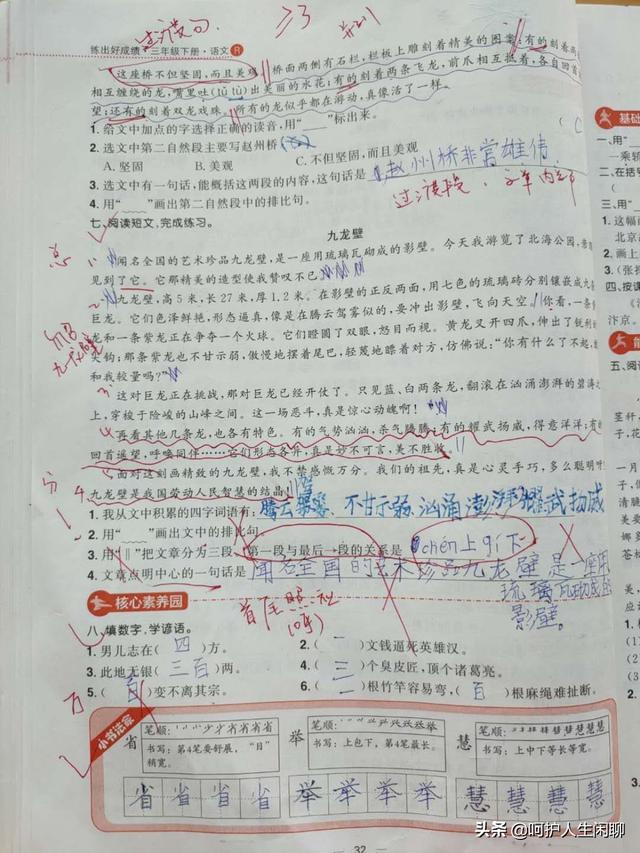 过渡句
练出好成绩·三年级下册·语文 R
这座桥不但坚固,而且美观。桥面两侧有石栏,栏板上雕刻着精美的图案:有的刻着两
相互缠绕的龙,嘴里吐(tǔ tù)出美丽的水花;有的刻着两条飞龙,前爪相互抵着,各自回首
望;还有的刻着双龙戏珠。所有的龙似乎都在游动,真像活了一样。
1. 给文中加点的字选择正确的读音,用“____”标出来。
2. 选文中第二自然段主要写赵州桥( ) ( C
A. 坚固 B. 美观 C. 不但坚固,而且美观
3. 选文中有一句话,能概括这两段的内容,这句话是 赵州桥非常雄伟
4. 用“____”画出第二自然段中的排比句。
过渡段
七、阅读短文,完成练习。
九龙壁
总
闻名全国的艺术珍品九龙壁,是一座用琉璃瓦砌成的影壁。今天我游览了北海公园,
见到了它。它那精美的造型使我赞叹不已
九龙壁,高5米,长27米,厚1.2米。在影壁的正反两面,用七色的琉璃砖分别镶嵌成九
巨龙。它们色泽鲜艳,形态逼真,像是在腾云驾雾似的,要冲出影壁,飞向天空。你看,一条
龙和一条紫龙正在争夺一个火球。它们瞪圆了双眼,怒目而视。黄龙叉开四爪,伸出了锐利
大钩;那条紫龙也不甘示弱,傲慢地摆着尾巴,轻蔑地瞧着对方,仿佛说:“你有什么了不起,
和我较量吗?”
这对巨龙正在挑战,那对巨龙已经开仗了。只见蓝、白两条龙,翻滚在汹涌澎湃的碧
上,穿梭于险峻的山峰之间。这一场恶斗,真是惊心动魄啊!
再看其他几条龙,也各有特色。有的气势汹汹,杀气腾腾;有的耀武扬威,得意洋洋;有
回首遥望,呼唤同伴……它们形态各异,真是妙不可言,美不胜收。
面对这刻画精致的九龙壁,我不禁感慨万分。我们的祖先,真是心灵手巧,多么聪明
九龙壁是我国劳动人民智慧的结晶
1. 我从文中积累的四字词语有: 腾云驾雾、不甘示弱、汹涌澎湃、耀武扬威
2. 用“____”画出文中的排比句。
3. 用“‖”把文章分为三段,第一段与最后一段的关系是 chén上qǐ下
4. 文章点明中心的一句话是 闻名全国的艺术珍品九龙壁是一座用
琉璃瓦砌成的
影壁。
首尾照应
核心素养园
八、填数字,学谚语。
1. 男儿志在( 四 )方。 2. ( 一 )文钱逼死英雄汉。
3. 此地无银( 三百 )两。 4. ( 三 )个臭皮匠,顶个诸葛亮。
5. ( 百 )变不离其宗。 6. ( 一 )根竹竿容易弯,( 百 )根麻绳难扯断。
万
小书法家
省 笔顺:
书写:第4笔要舒展,“目”稍宽。
举 笔顺:
书写:上包下,第4笔最长。
慧 笔顺:
书写:上中下等长等宽。
省省省省 举举举举 慧慧慧慧
32
头条 @呵护人生闲聊